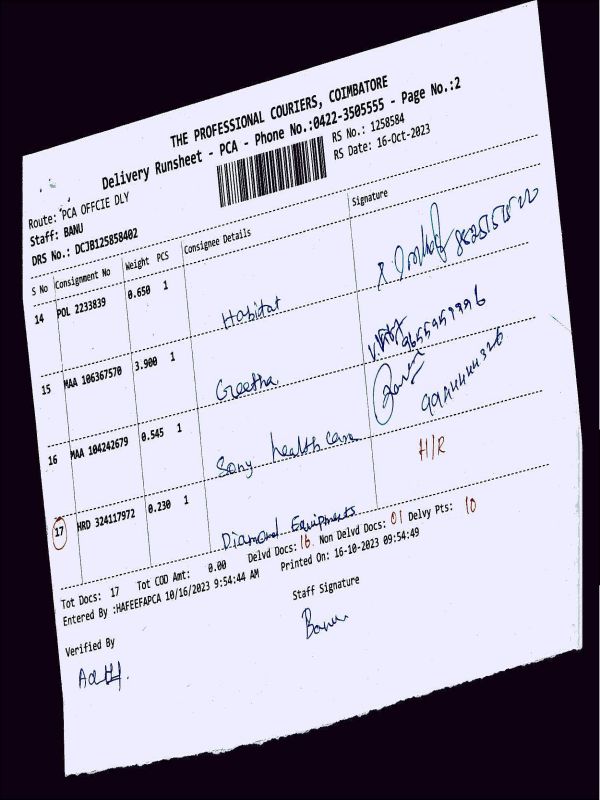 THE PROFESSIONAL COURIERS, COIMBATORE
Delivery Runsheet - PCA - Phone No.:0422-3505555 - Page No.:2
RS No.: 1258584
RS Date: 16-Oct-2023
Route: PCA OFFCIE DLY
Staff: BANU
DRS No.: DCJB125858402
S No Consignment No Weight PCS Consignee Details Signature
14 POL 2233839 0.650 1 Habitat
15 MAA 106367570 3.900 1 Geetha 9655959996
16 MAA 104242679 0.545 1 Sony health care 9944444326
17 HRD 324117972 0.230 1 Diamond Equipments H/R
Tot Docs: 17 Tot COD Amt: 0.00 Delvd Docs: 16 Non Delvd Docs: 01 Delvy Pts: 10
Entered By :HAFEEFAPCA 10/16/2023 9:54:44 AM Printed On: 16-10-2023 09:54:49
Verified By
Staff Signature
Banu